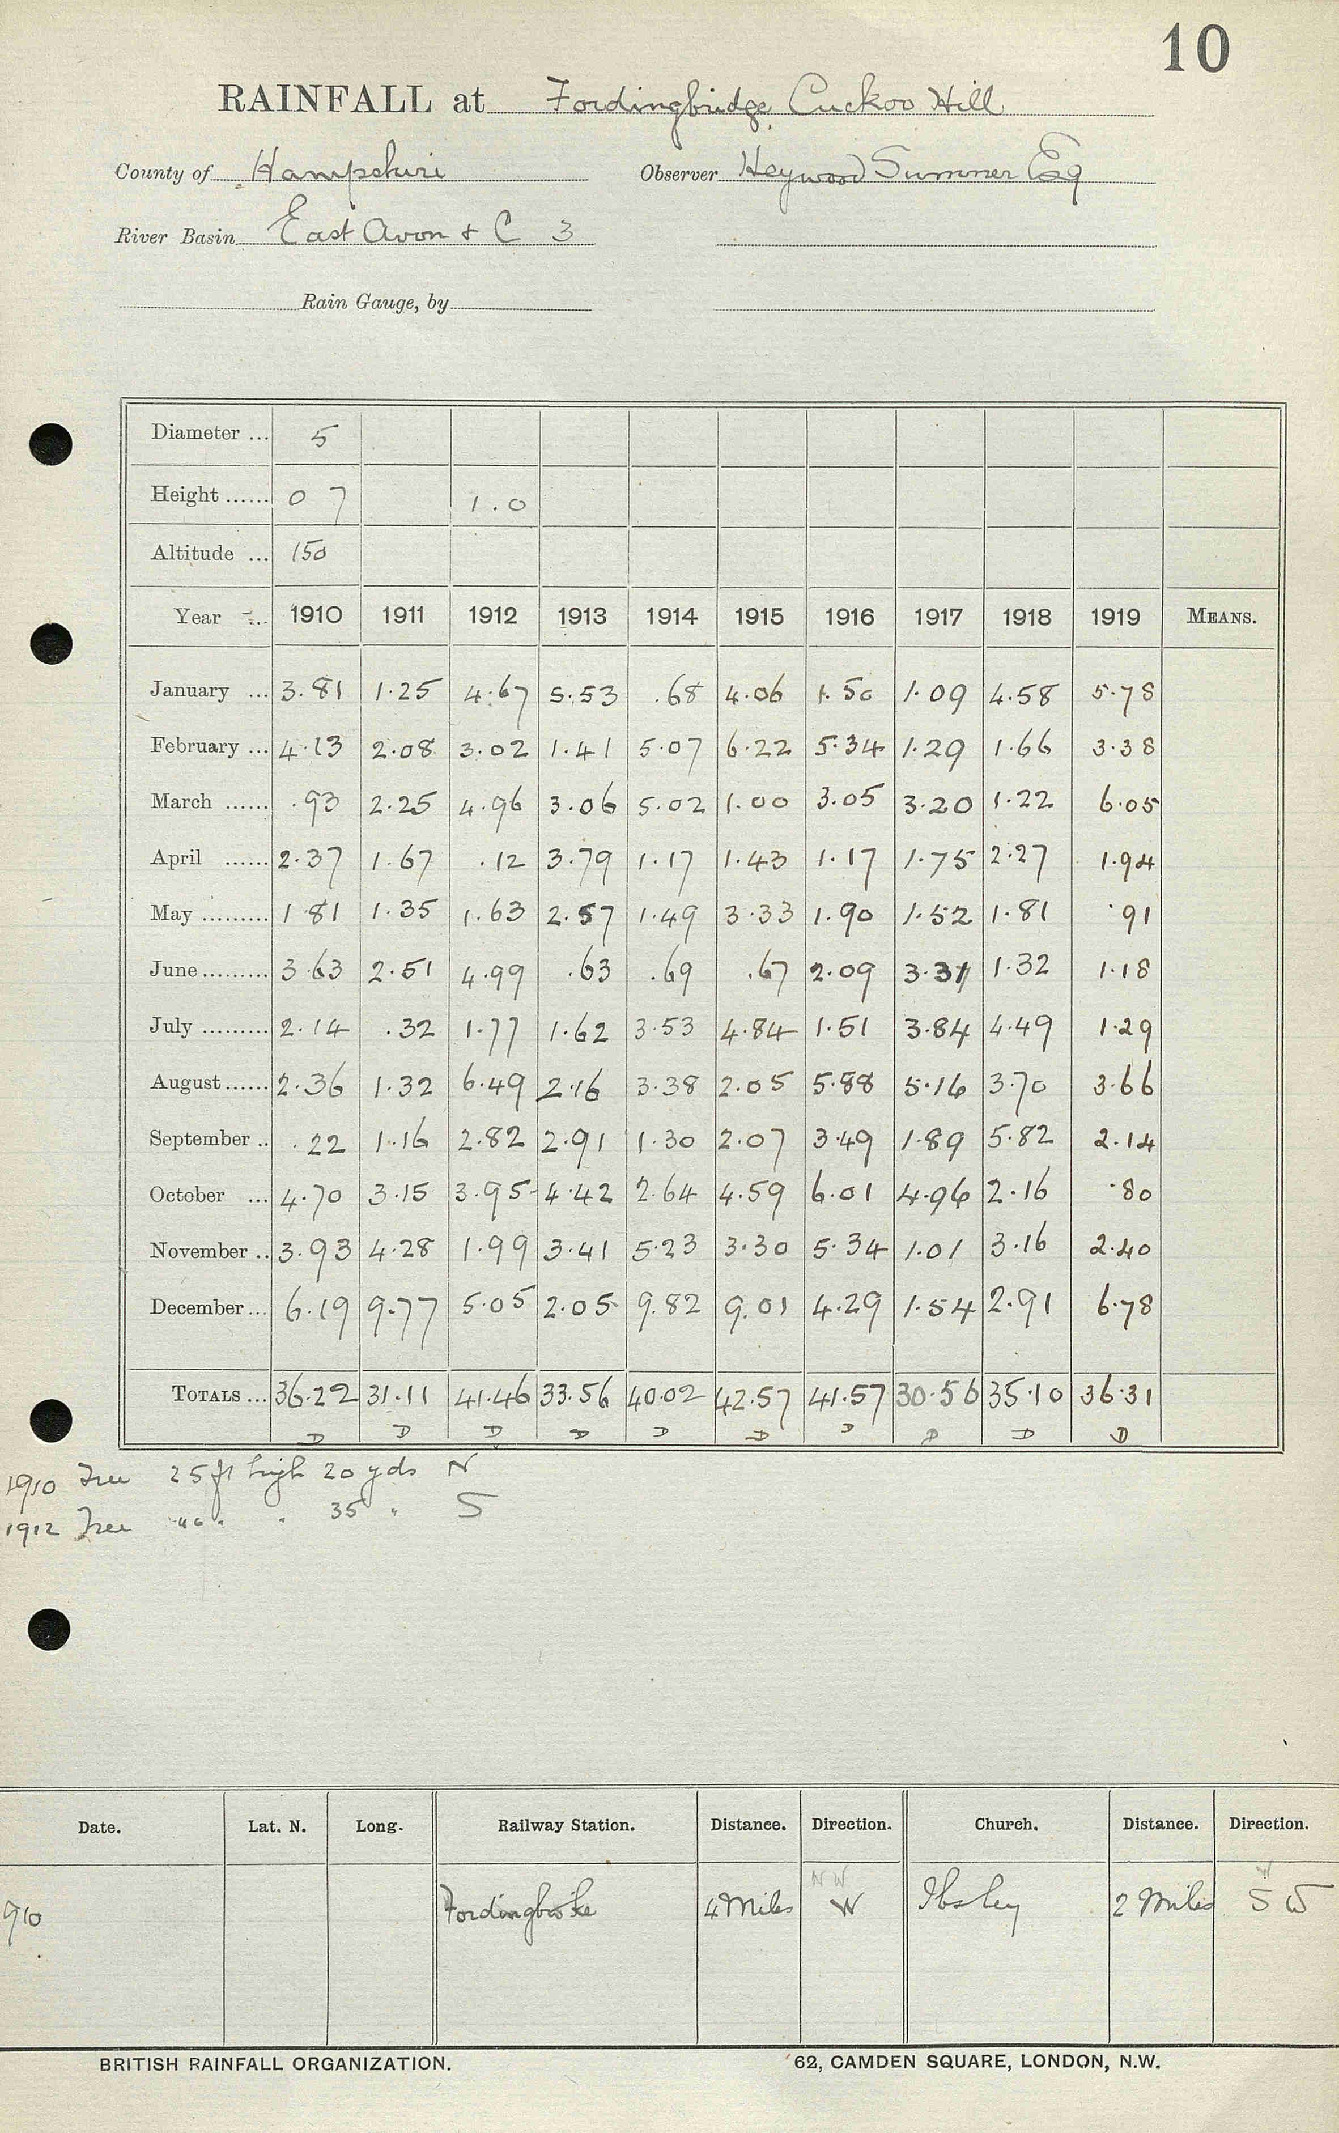 10
RAINFALL at Fordingbridge, Cuckoo Hill
County of Hampshire Observer Heywood Sumner Esq
River Basin East Avon & C 3
Rain Gauge, by
Diameter ... 5
Height ...... 0 7 1.0
Altitude ... 150
Year ... 1910 1911 1912 1913 1914 1915 1916 1917 1918 1919 MEANS.
January ... 3.81 1.25 4.67 5.53 .68 4.06 1.50 1.09 4.58 5.78
February ... 4.13 2.08 3.02 1.41 5.07 6.22 5.34 1.29 1.66 3.38
March ...... .93 2.25 4.96 3.06 5.02 1.00 3.05 3.20 1.22 6.05
April ...... 2.37 1.67 .12 3.79 1.17 1.43 1.17 1.75 2.27 1.94
May ......... 1.81 1.35 1.63 2.57 1.49 3.33 1.90 1.52 1.81 .91
June ......... 3.63 2.51 4.99 .63 .69 .67 2.09 3.31 1.32 1.18
July ......... 2.14 .32 1.77 1.62 3.53 4.84 1.51 3.84 4.49 1.29
August ...... 2.36 1.32 6.49 2.16 3.38 2.05 5.88 5.16 3.70 3.66
September .. .22 1.16 2.82 2.91 1.30 2.07 3.49 1.89 5.82 2.14
October ... 4.70 3.15 3.95 4.42 2.64 4.59 6.01 4.96 2.16 .80
November .. 3.93 4.28 1.99 3.41 5.23 3.30 5.34 1.01 3.16 2.40
December ... 6.19 9.77 5.05 2.05 9.82 9.01 4.29 1.54 2.91 6.78
TOTALS ... 36.22 31.11 41.46 33.56 40.02 42.57 41.57 30.56 35.10 36.31
D D D D D D D D D D
1910 Tree 25 ft high 20 yds N
1912 Tree " " 35 " S
Date. Lat. N. Long. Railway Station. Distance. Direction. Church. Distance. Direction.
NW W
910 Fordingbridge 4 Miles W Ibsley 2 Miles SW
BRITISH RAINFALL ORGANIZATION. 62, CAMDEN SQUARE, LONDON, N.W.